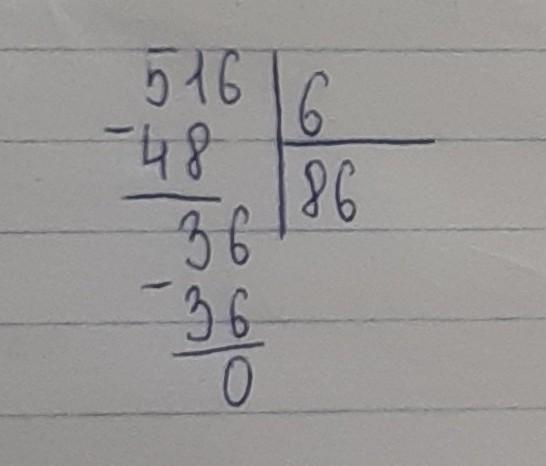 516 | 6
-48 | 86
36
-36
0